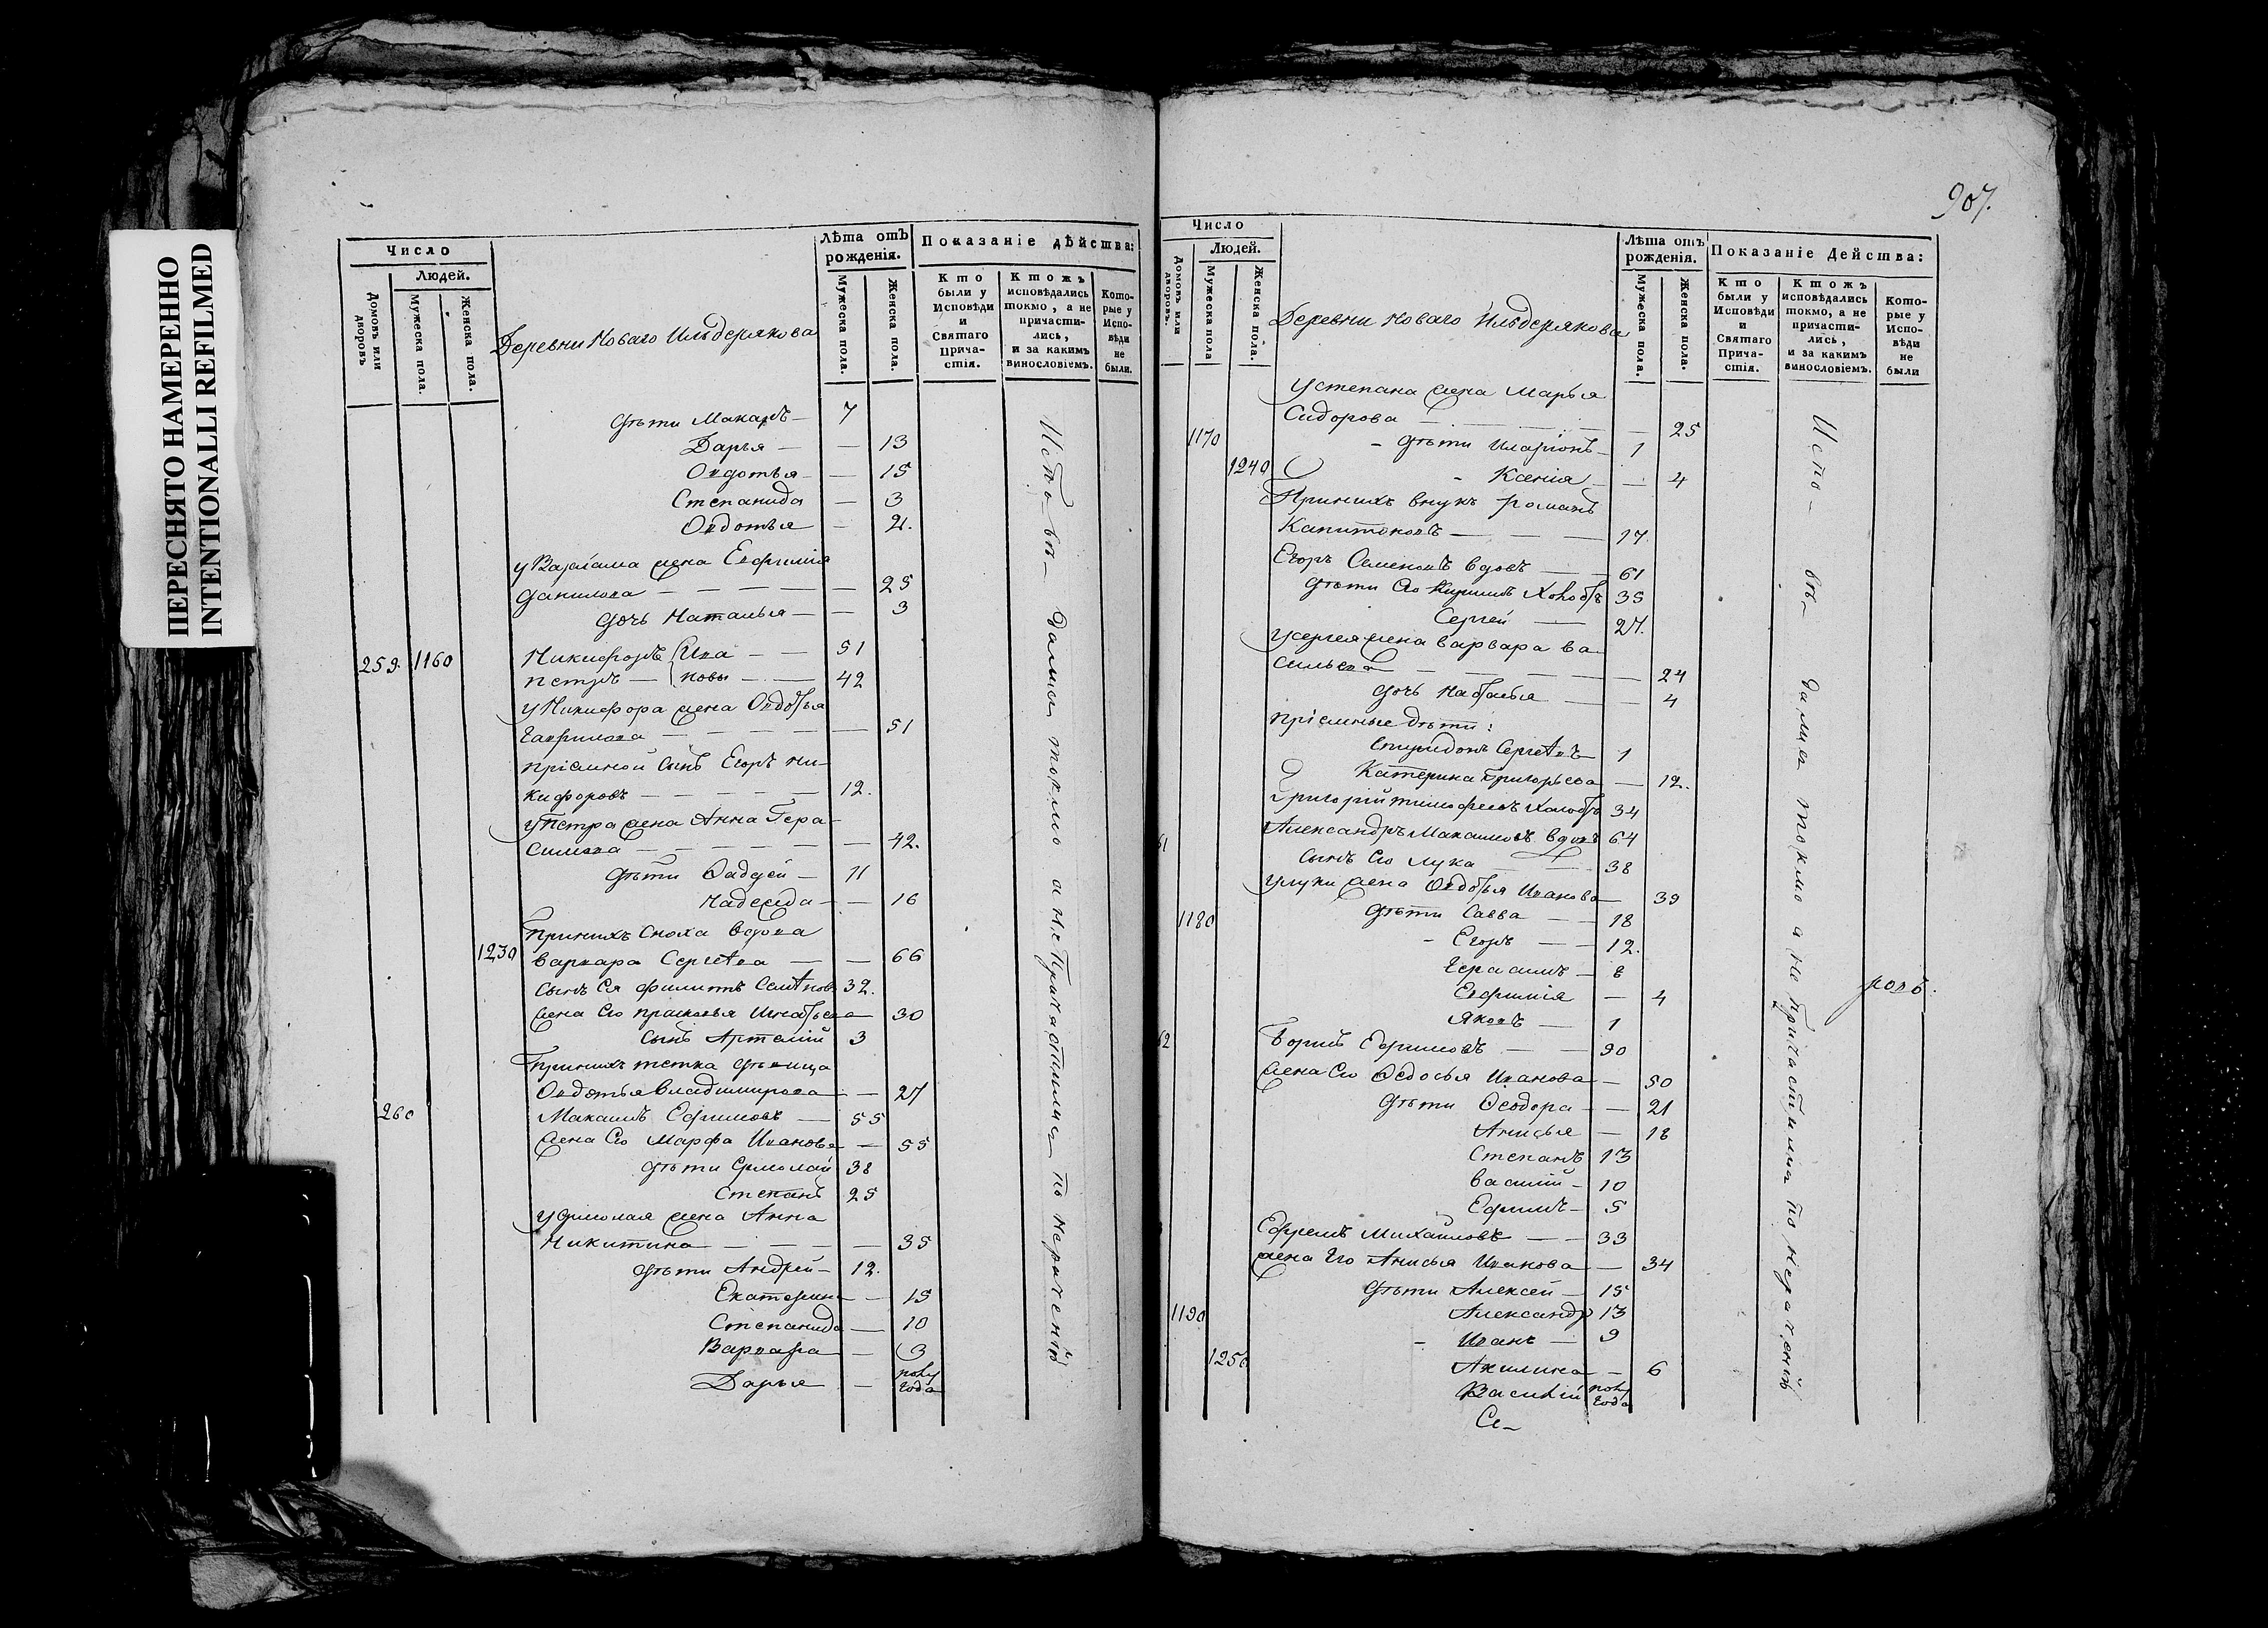 ПЕРЕСНЯТО НАМЕРЕННО
INTENTIONALLI REFILMED
Число
Людей.
Домовъ или дворовъ
Мужеска пола.
Женска пола.
Лѣта отъ рожденія.
Мужеска пола.
Женска пола.
Показаніе дѣйства:
Кто были у Исповѣди и Святаго Причастія.
Ктожъ исповѣдались токмо, а не причастились, и за какимъ винословіемъ.
Которые у Исповѣди не были.
Деревни Новаго Ильдерякова
дѣти Макаръ — 7
Дарья — — 13
Овдотья — — 15
Степанида — 3
Овдотья — 2.
у Варлама жена Евфимія
Данилова — — — — — 25
дочь Наталья — — 3
259. 1160 Никифоръ Ива — — 51
Петръ — новы — — 42
у Никифора жена Овдотья
Гаврилова — — — — — 51
пріемной сынъ Егоръ Ни-
кифоровъ — — — — — 12.
у Петра жена Анна Гера-
симова — — — — — — 42.
дѣти Фаддей — 11
Надежда — — 16
При нихъ сноха вдова
1230 Варвара Сергѣева — — 66
сынъ Ея Филипъ Семѣновъ 32.
жена Его Прасковья Игнатьева 30
сынъ Артемій 3
При нихъ тетка дѣвица
Овдотья Владимирова — 27
260 Максимъ Ефимовъ — 55
жена Его Марфа Иванова — 55
дѣти Ермолай 38
Степанъ 25
у Ермолая жена Анна
Никитина — — — — 35
дѣти Андрей — 12.
Екатерина — 15
Степанида — 10
Варвара — 3
Дарья — полу года
Исповѣдались токмо а не Причастились по нераченію
907.
Число
Людей.
Домовъ или дворовъ.
Мужеска пола
Женска пола.
Лѣта отъ рожденія.
Мужеска пола.
Женска пола.
Показаніе Действа:
Кто были у Исповѣди и Святаго Причастія.
Ктожъ исповѣдались токмо, а не причастились, и за какимъ винословіемъ.
Которые у Исповѣди не были
Деревни Новаго Ильдерякова
у Степана жена Марья
Сидорова — — — — — 25
1170 - дѣти Иларіонъ — 1
1240 - Ксенія — — 4
При нихъ внукъ Романъ
Капитоновъ — — — 17
Егоръ Семеновъ вдовъ — 61
дѣти Его Кирилъ Холостъ 35
Сергей — 27.
у Сергея жена Варвара Ва-
сильева — — — — — 24
дочь Наталья — — 4
Пріемные дѣти:
Спиридонъ Сергѣевъ — 1
Катерина Григорьева — 12.
Григорій Тимофеевъ Холостъ 34
61 Александръ Максимовъ вдовъ 64
сынъ Его Лука — 38
у Луки жена Овдотья Иванова — 39
1180 дѣти Савва — — 18
- Егоръ — — 12.
Герасимъ — 8
Евфимія — 4
Яковъ — 1
62 Борисъ Ефимовъ — — 90
жена Его Федосья Иванова — 50
дѣти Феодора — — 21
Анисья — 18
Степанъ 13
Василій — 10
Ефимъ — 5
Ефремъ Михайловъ — — 33
жена Его Анисья Иванова — 34
дѣти Алексей — 15
1190 Александр 13
- Иванъ — 9
1250 Акилина — 6
Василій полу года
Се-
Исповѣдались токмо а не Причастились по нераченію